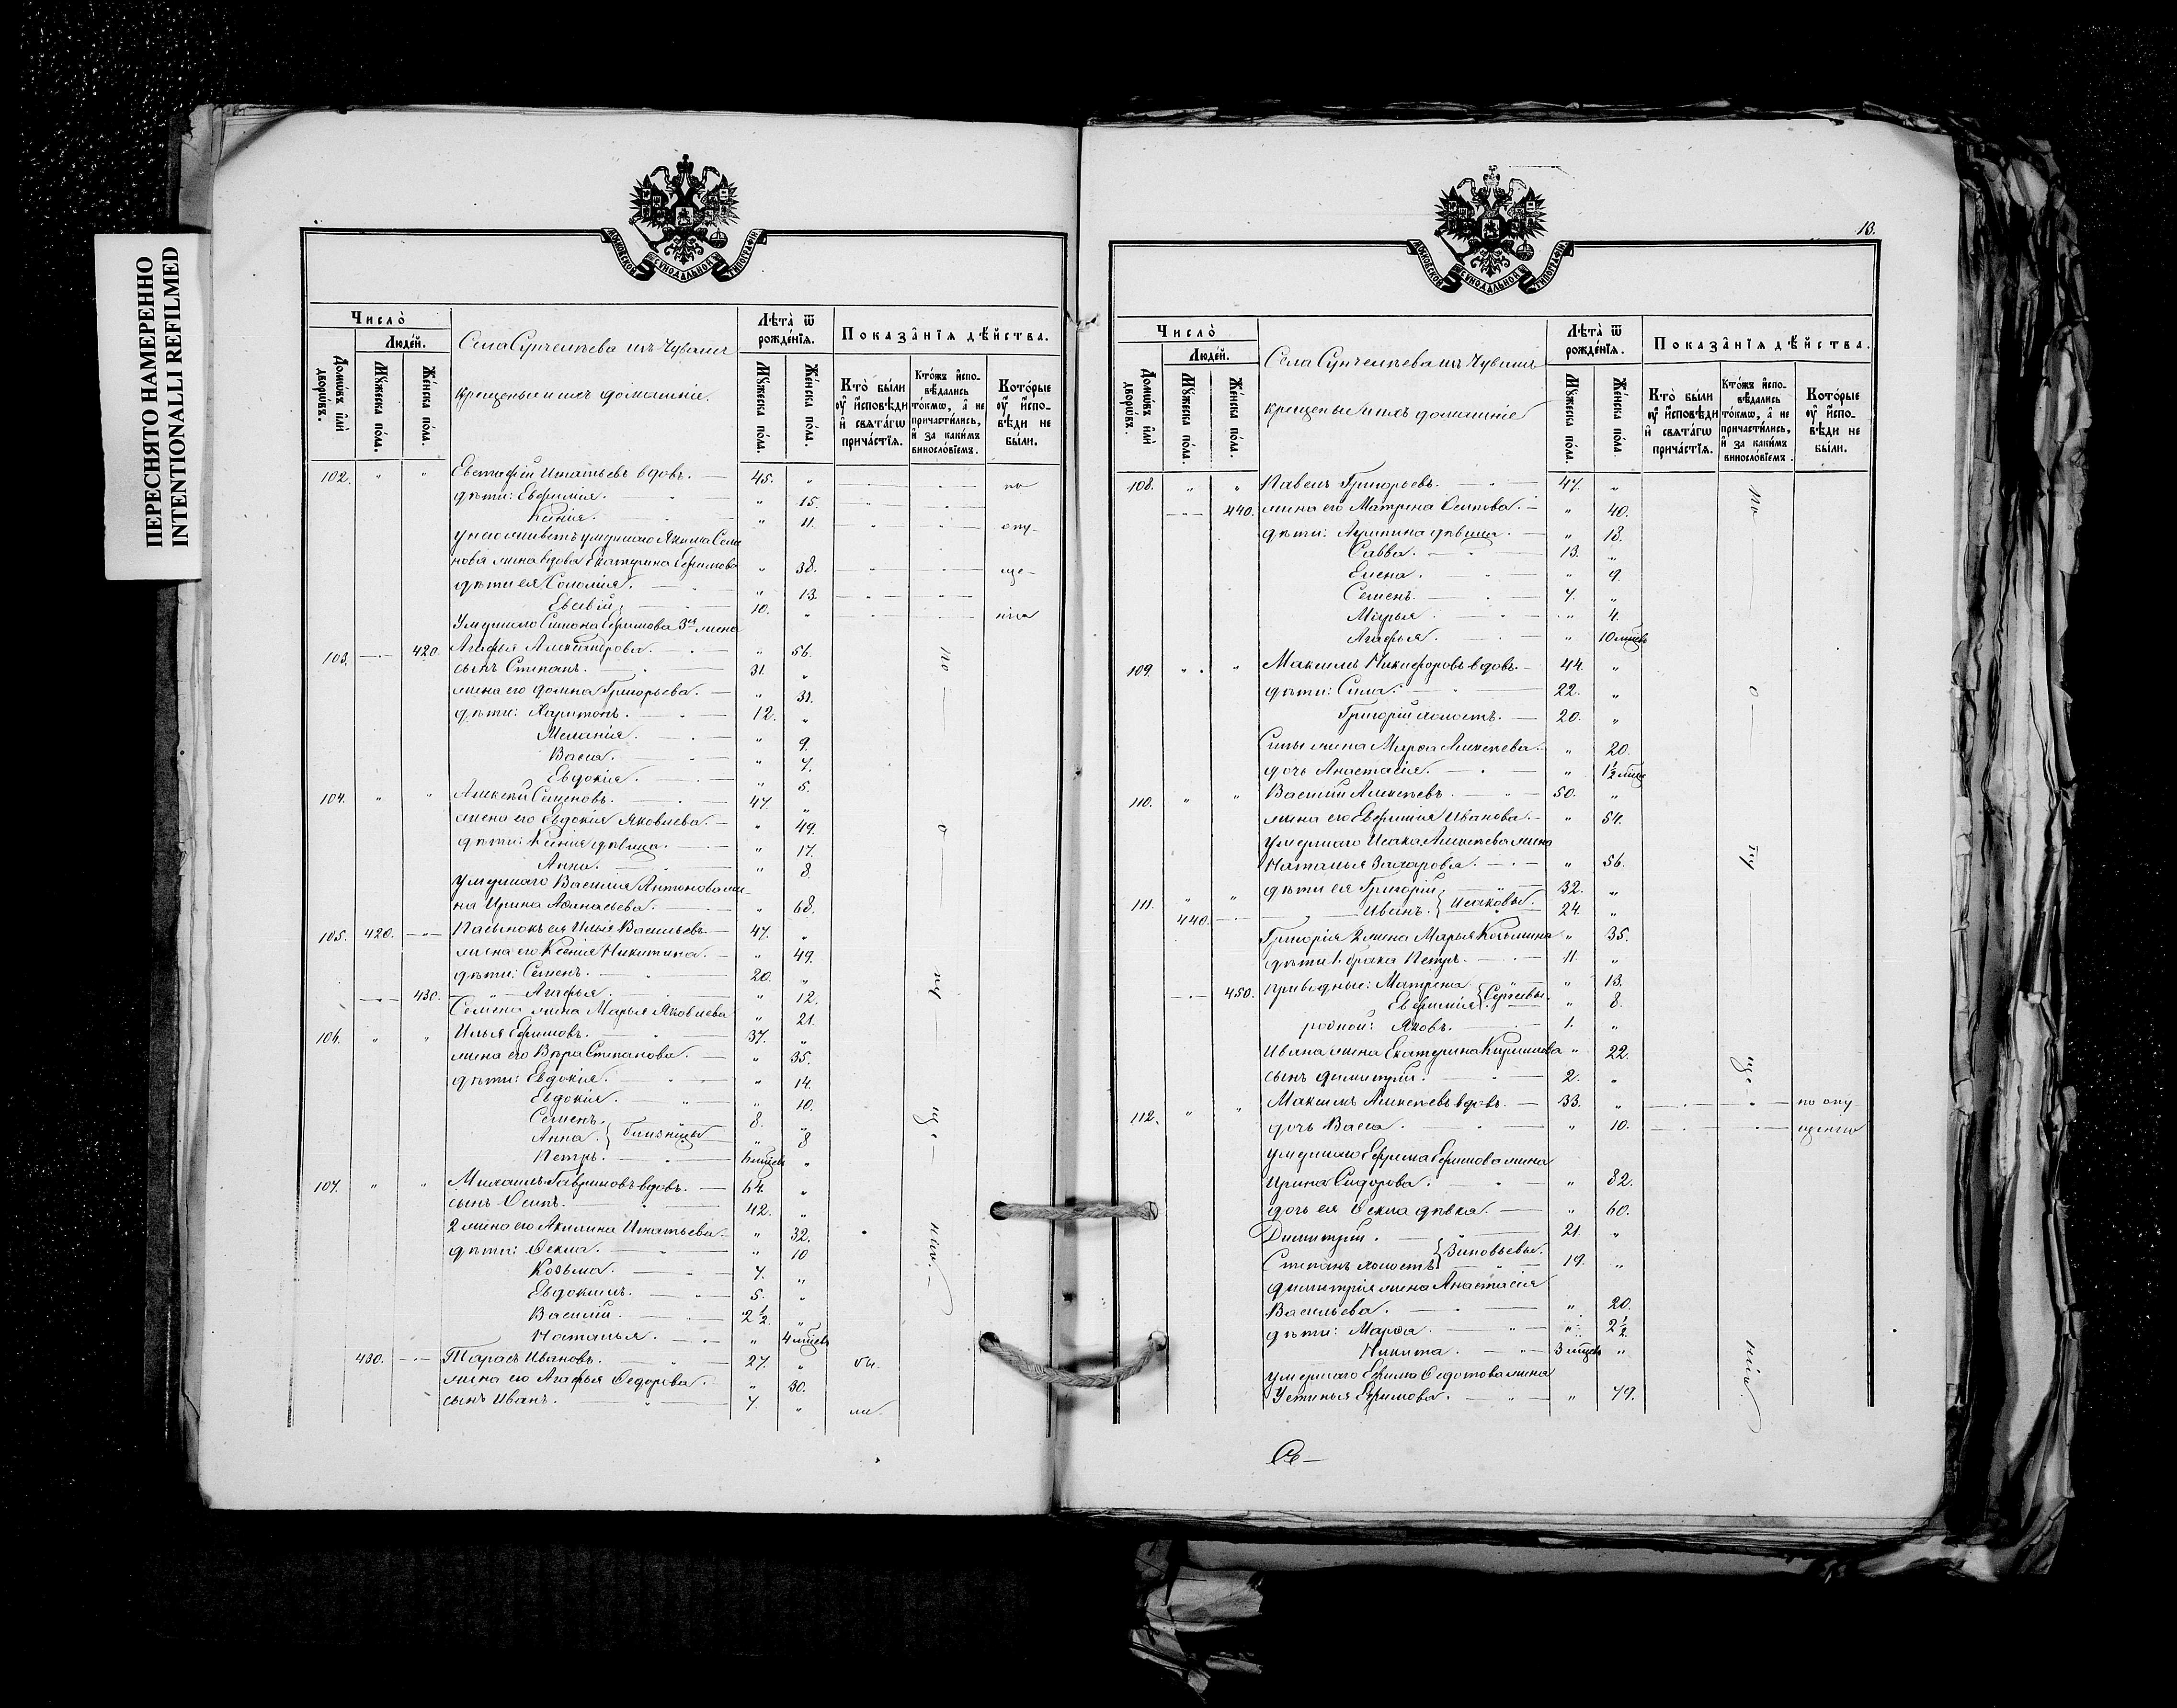 ПЕРЕСНЯТО НАМЕРЕННО
INTENTIONALLI REFILMED
МОСКОВСКОЙ СѴНОДАЛЬНОЙ ТИПОГРАФІИ.
Число̀
Люде́й.
Домѡ́въ и҆лѝ дворѡ́въ.
Мꙋ́жеска по́ла.
Же́нска по́ла.
Села Сунчелеева изъ Чувашъ
крещеные и ихъ домашніе.
Лѣта̀ ѿ рожде́нїѧ.
Мꙋ́жеска по́ла.
Же́нска по́ла.
Показа̑нїѧ дѣ́йства.
Кто̀ бы́ли ᲂу҆ и҆сповѣ́ди и҆ свѧта́гѡ прича́стїѧ.
Кто́жъ и҆спо-
вѣ́дались
то́кмѡ, а҆ не
причасти́лись,
и҆ за каки́мъ
виносло́вїемъ.
Кото́рые
ᲂу҆ и҆спо-
вѣ́ди не
бы́ли.
102. " " Евстафій Игнатьевъ вдовъ. 45. " по
дѣти: Евфимія. " 15.
Ксенія. " 11. опу-
у него живетъ умершаго Якима Семе
нова жена вдова Екатерина Ефимова " 38. ще-
дѣти ея Соломія. " 13.
Евсевій. 10. " нію
Умершаго Симона Ефимова 3я жена
103. 420. Агафья Александрова. " 56. по
сынъ Степанъ. 31. "
жена его Домна Григорьева. " 31.
дѣти: Харитонъ. 12. "
Меланія. " 9.
Васса. " 7.
Евдокія. " 5.
104. " " Алексѣй Семеновъ. 47. "
жена его Евдокія Яковлева. " 49. о
дѣти: Ксенія дѣвица. " 17.
Анна. " 8.
Умершаго Василія Антонова же-
на Ирина Аѳанасьева. " 68.
105. 420. Пасынокъ ея Илья Васильевъ. 47. "
жена его Ксенія Никитина. " 49.
дѣти: Семенъ. 20. " пу
430. Агафья. " 12.
Семена жена Марья Яковлева " 21.
106. " " Илья Ефимовъ. 37. "
жена его Вѣра Степанова. " 35.
дѣти: Евдокія. " 14.
Евдокія. " 10.
Семенъ. 8. " ще
Анна. близнецы " 8
Петръ. 6 мѣцевъ "
107. " " Михаилъ Гавриловъ вдовъ. 64. "
сынъ Осипъ. 42. "
2 жена его Акилина Игнатьева. " 32. нію.
дѣти: Ѳекла. " 10
Козьма. 7. "
Евдокимъ. 5. "
Василій. 2½. "
Наталья. " 4 мѣцевъ
430. Тарасъ Ивановъ. 27. " бы.
жена его Агафья Ѳедорова. " 30.
сынъ Иванъ. 7. " ли.
13.
МОСКОВСКОЙ СѴНОДАЛЬНОЙ ТИПОГРАФІИ.
Число̀
Люде́й.
Домѡ́въ и҆лѝ дворѡ́въ.
Мꙋ́жеска по́ла.
Же́нска по́ла.
Села Сунчелеева изъ Чувашъ
крещеные и ихъ домашніе
Лѣта̀ ѿ рожде́нїѧ.
Мꙋ́жеска по́ла.
Же́нска по́ла.
Показа̑нїѧ дѣ́йства.
Кто̀ бы́ли ᲂу҆ и҆сповѣ́ди и҆ свѧта́гѡ прича́стїѧ.
Кто́жъ и҆спо-
вѣ́дались
то́кмѡ, а҆ не
причасти́лись,
и҆ за каки́мъ
виносло́вїемъ.
Кото́рые
ᲂу҆ и҆спо-
вѣ́ди не
бы́ли.
108. " " Павелъ Григорьевъ. 47. " по
440. жена его Матрена Осипова. " 40.
дѣти: дѣвица. " 18.
Савва. 13. "
Елена. " 9.
Семенъ. 7. "
Марья. " 4.
Агафья. " 10 мѣцевъ
109. " " Максимъ Никифоровъ вдовъ. 44. "
дѣти: Сила. 22. " о
Григорій холостъ. 20. "
Силы жена Марѳа Алексѣева. " 20.
дочь Анастасія. " 1½ мѣц
110. " " Василій Алексѣевъ. 50. "
жена его Евфимія Иванова. " 54.
умершаго Исака Алексѣева жена пу
Наталья Захарова. " 56.
111. " " дѣти ея Григорій 32. "
440. Иванъ. Исаковы. 24. "
Григорія 2 жена Марья Козьмина " 35.
дѣти 1. брака Петръ. 11. "
450. приводные: Матрена " 13.
Евфимія Сергѣевы. " 8.
родной: Яковъ. 1. "
Ивана жена Екатерина Кирилова " 22. ще-
сынъ Димитрій. 2. "
112. " " Максимъ Алексѣевъ вдовъ. 33. " по опу
дочь Васса. " 10. щенію
умершаго Ефрема Ефимова жена
Ирина Сидорова. " 82.
дочь ея Ѳекла дѣвка. " 60.
Димитрій. 21. "
Степанъ холостъ Зиновьевы. 19. "
Димитрія жена Анастасія
Васильева. " 20.
дѣти: Марѳа. " 2½
Никита. 3 мѣцевъ " нію.
умершаго Ефима Ѳедотова жена
Устинья Ефимова. " 79.